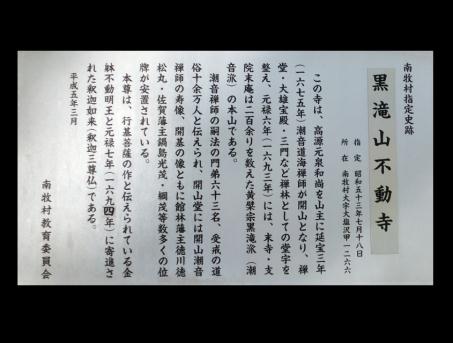 南牧村指定史跡
黒滝山不動寺
指定 昭和五十三年七月十八日
所在 南牧村大字大塩沢甲一二六六
この寺は、高源元泉和尚を山主に延宝三年
(一六七五年)潮音道海禅師が開山となり、禅
堂・大雄宝殿・三門など禅林としての堂宇を
整え、元禄六年(一六九三年)には、末寺・支
院末庵は二百余りを数えた黄檗宗黒滝派(潮
音派)の本山である。
潮音禅師の嗣法の門弟六十三名、受戒の道
俗十余万人と伝えられ、開山堂には開山潮音
禅師の寿像、開基の像とともに館林藩主徳川徳
松丸・佐賀藩主鍋島光茂・綱茂等数多くの位
牌が安置されている。
本尊は、行基菩薩の作と伝えられている金
躰不動明王と元禄七年(一六九四年)に寄進さ
れた釈迦如来(釈迦三尊仏)である。
平成五年三月
南牧村教育委員会